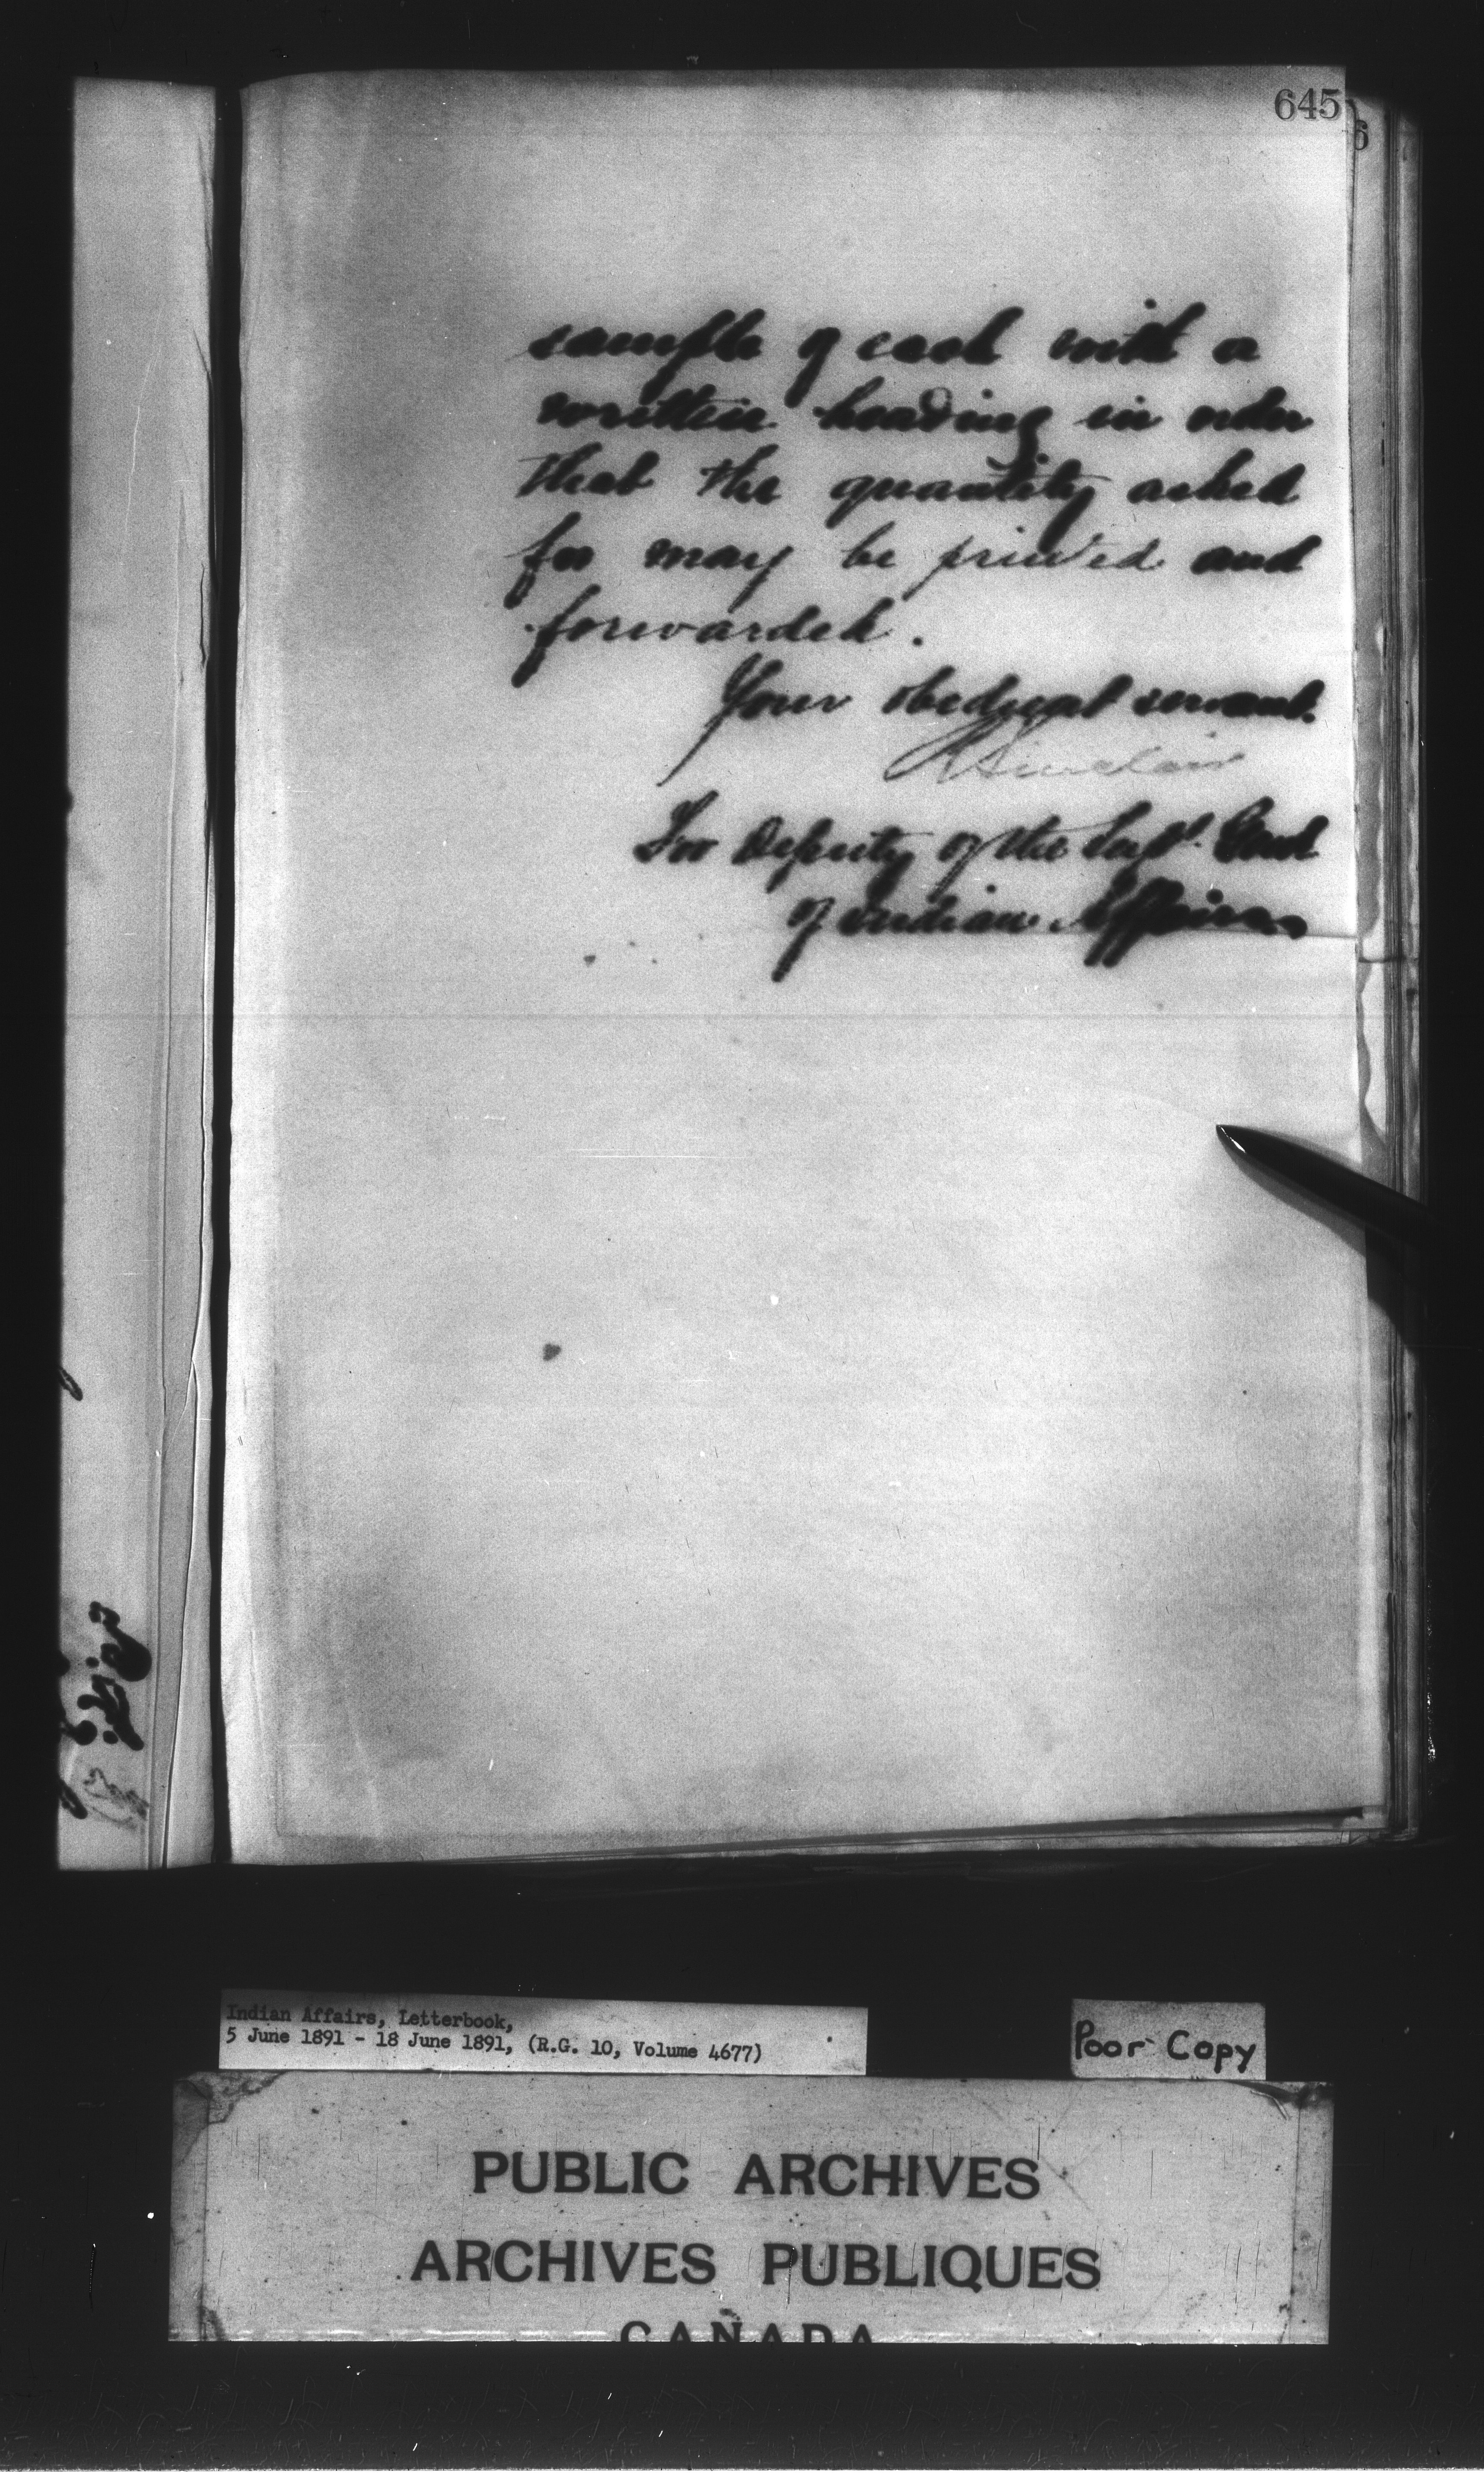 645
6
sample of each with a
written heading in order
that the quantity asked
for may be printed and
forwarded.
Your obedient servant.
R Sinclair
For Deputy of the Supt. Genl
of Indian Affairs
Indian Affairs, Letterbook,
5 June 1891 - 18 June 1891, (R.G. 10, Volume 4677)
Poor Copy
PUBLIC ARCHIVES
ARCHIVES PUBLIQUES
CANADA